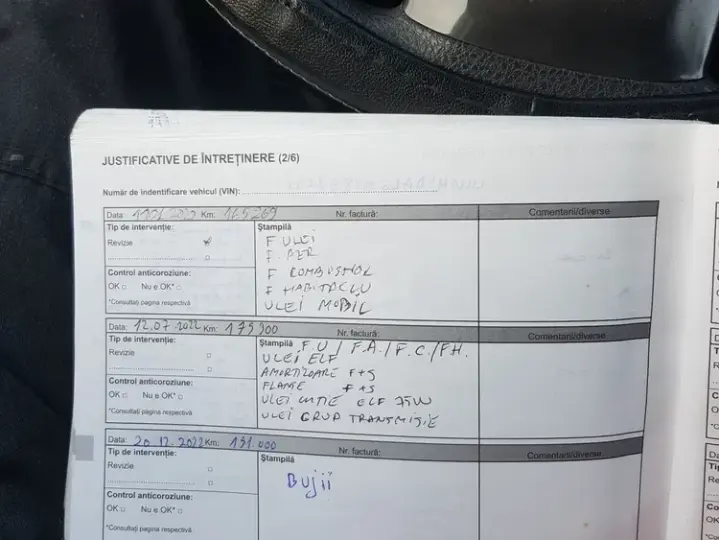 JUSTIFICATIVE DE ÎNTREȚINERE (2/6)
Număr de indentificare vehicul (VIN):
Data: Km: 165269 Nr. factură: Comentarii/diverse
Tip de intervenție: Ștampilă
Revizie F ULEI
F. AER
Control anticoroziune: F COMBUSTIBIL
OK Nu e OK* F HABITACLU
*Consultați pagina respectivă ULEI MOBIL
Data: 12.07.2022 Km: 175900 Nr. factură: Comentarii/diverse
Tip de intervenție: Ștampilă F.U / F.A./F.C./F.H.
Revizie ULEI ELF
AMORTIZOARE F+S
Control anticoroziune: FLANSE F+S
OK Nu e OK* ULEI CUTIE ELF 75W
*Consultați pagina respectivă ULEI GRUP TRANSMISIE
Data: 20.12.2022 Km: 191.000 Nr. factură: Comentarii/diverse
Tip de intervenție: Ștampilă
Revizie Bujii
Control anticoroziune:
OK Nu e OK*
*Consultați pagina respectivă